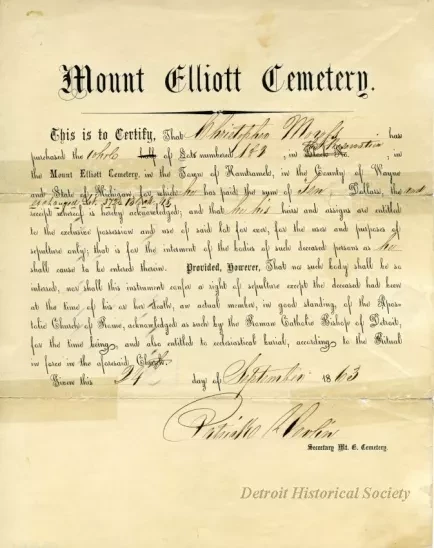 Mount Elliott Cemetery.
This is to Certify, That Christopher has
purchased the whole of Lots numbered 183, in in
the Mount Elliott Cemetery, in the Town of Hamtramck, in the County of Wayne
and State of Michigan, for which he has paid the sum of Ten Dollars, the and
exchanged Lot
receipt whereof is hereby acknowledged; and that he his heirs and assigns are entitled
to the exclusive possession and use of said lot for ever, for the uses and purposes of
sepulture only; that is for the interment of the bodies of such deceased persons as he
shall cause to be entered therein. Provided, However, That no such body shall be so
interred, nor shall this instrument confer a right of sepulture except the deceased had been
at the time of his or her death, an actual member, in good standing, of the Apos-
tolic Church of Rome, acknowledged as such by the Roman Catholic Bishop of Detroit,
for the time being, and also entitled to ecclesiastical burial, according to the Ritual
in force in the aforesaid Church.
Given this 24 day of September 1863
Secretary Mt. E. Cemetery.
Detroit Historical Society